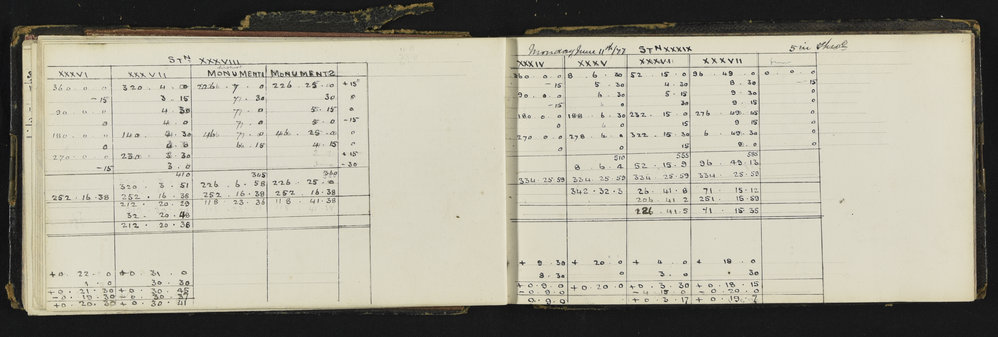 STN XXXVIII
XXXVI XXXVII MONUMENT1 MONUMENT2
360 . 0 . 0 320 . 4 . 0 226 . 7 . 0 226 . 25 . 0 +15"
-15 3 . 15 7 . 30 30 0
90 . 0 . 0 4 . 30 7 . 0 5 . 15 0
0 4 . 0 7 . 0 5 . 0 -15
180 . 0 . 0 140 . 30 46 . 7 . 0 46 . 25 . 0 0
0 6 . 15 4 . 15 0
270 . 0 . 0 230 . 3 . 30 +15
-15 3 . 0 -30
410 365 360
320 . 3 . 51 226 . 6 . 58 226 . 25 . 0
252 . 16 . 38 252 . 16 . 38 252 . 16 . 38 252 . 16 . 38
212 . 20 . 29 118 . 23 . 36 118 . 41 . 38
32 . 20 . 48
212 . 20 . 38
+0 . 22 . 0 +0 . 31 . 0
1 . 0 30 . 30
+0 . 21 . 30 +0 . 30 . 45
-0 . 19 . 30 -0 . 30 . 37
+0 . 20 . 30 +0 . 30 . 41
Monday June 11th/77 STN XXXIX 5 in Theod
XXXIV XXXV XXXVI XXXVII
360 . 0 . 0 8 . 6 . 30 52 . 15 . 0 96 . 49 . 0 0 . 0 . 0
-15 5 . 30 4 . 30 8 . 30 -15
90 . 0 . 0 6 . 30 5 . 15 9 . 30 0
-15 6 . 0 30 9 . 15 0
180 . 0 . 0 188 . 6 . 30 232 . 15 . 0 276 . 49 . 45 0
0 6 . 0 15 9 . 15 0
270 . 0 . 0 278 . 6 . 0 322 . 15 . 30 6 . 49 . 30 0
0 15 8 . 0 0
510 555 585
8 . 6 . 4 52 . 15 . 9 96 . 49 . 13
334 . 25 . 59 334 . 25 . 59 334 . 25 . 59 334 . 25 . 59
342 . 32 . 3 26 . 41 . 8 71 . 15 . 12
206 . 41 . 2 251 . 15 . 59
226 . 41 . 5 71 . 15 . 35
+ 9 . 30 + 20 . 0 + 4 . 0 + 18 . 0
8 . 30 0 3 . 0 30
+0 . 9 . 0 +0 . 20 . 0 +0 . 3 . 30 +0 . 18 . 15
-0 . 9 . 0 -0 . 20 . 0
0 . 9 . 0 +0 . 3 . 17 +0 . 19 . 7